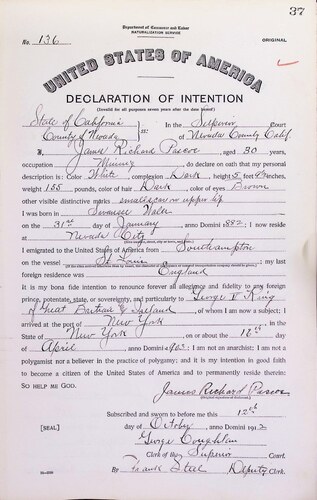 37
Department of Commerce and Labor
NATURALIZATION SERVICE
No. 136
ORIGINAL
UNITED STATES OF AMERICA
DECLARATION OF INTENTION
(Invalid for all purposes seven years after the date hereof)
State of California
County of Nevada ss:
In the Superior Court
of Nevada County Calif.
I, James Richard Pascoe, aged 30 years,
occupation Mining, do declare on oath that my personal
description is: Color White, complexion Dark, height 5 feet inches,
weight 155 pounds, color of hair Dark, color of eyes Brown
other visible distinctive marks small scar on upper lip
I was born in Swansea Wales
on the 31st day of January, anno Domini 1882; I now reside
at Nevada City
I emigrated to the United States of America from Southampton
on the vessel St Louis; my last
foreign residence was England
It is my bona fide intention to renounce forever all allegiance and fidelity to any foreign
prince, potentate, state, or sovereignty, and particularly to George V King
of Great Britain & Ireland, of whom I am now a subject; I
arrived at the port of New York, in the
State of New York, on or about the day
of April, anno Domini; I am not an anarchist; I am not a
polygamist nor a believer in the practice of polygamy; and it is my intention in good faith
to become a citizen of the United States of America and to permanently reside therein:
SO HELP ME GOD.
James Richard Pascoe
Subscribed and sworn to before me this 12th
[SEAL] day of October, anno Domini 1912
George Coughlan
Clerk of the Superior Court.
By Frank Steel Deputy Clerk.